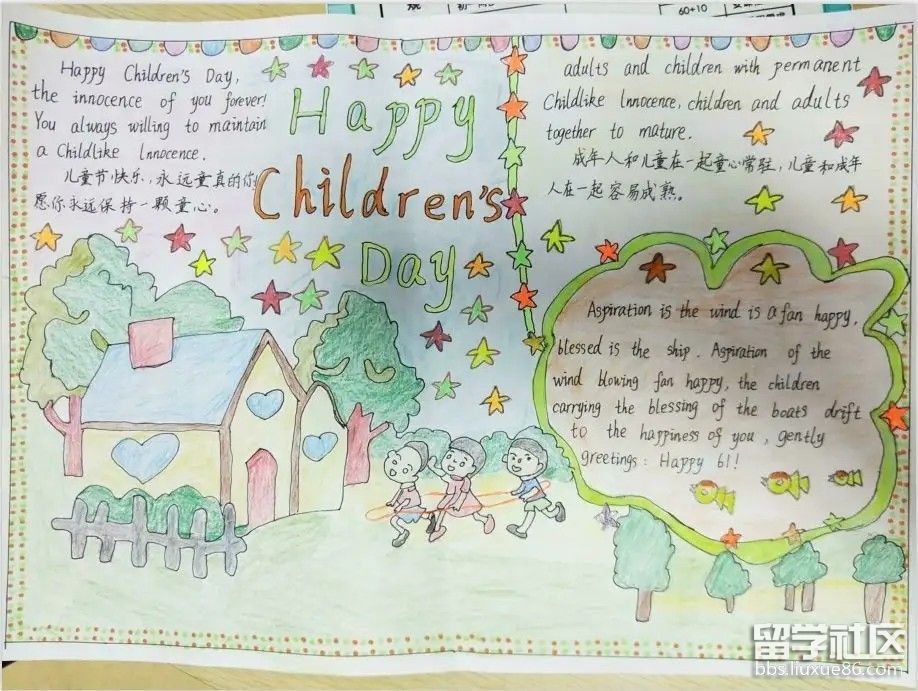 60+10
Happy Children's Day,
the innocence of you forever!
You always willing to maintain
a Childlike Innocence.
儿童节快乐,永远童真的你
愿你永远保持一颗童心。
Happy
Children's
Day
adults and children with permanent
Childlike Innocence, children and adults
together to mature.
成年人和儿童在一起童心常驻,儿童和成年
人在一起容易成熟。
Aspiration is the wind is a fan happy,
blessed is the ship. Aspiration of the
wind blowing fan happy, the children
carrying the blessing of the boats drift
to the happiness of you, gently
greetings: Happy 61!
留学社区
bbs.liuxue86.com